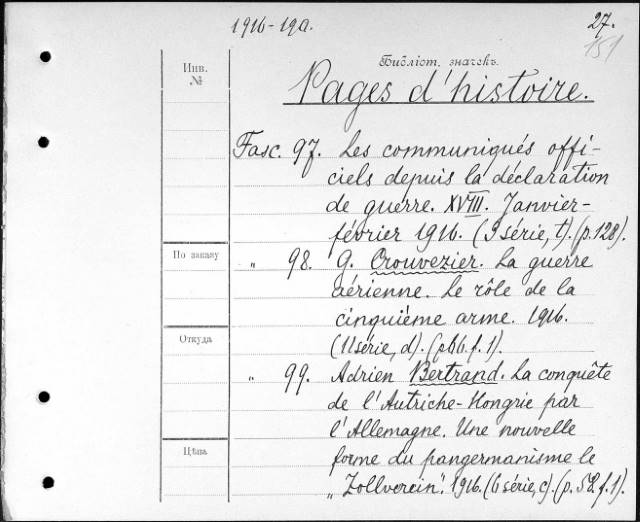 1916-19a. 27.
151
Библіот. значекъ.
Инв.
№
Pages d'histoire.
Fasc. 97. Les communiqués offi-
ciels depuis la déclaration
de guerre. XVIII. Janvier-
février 1916. (9 série, t). (p. 128).
По заказу
" 98. G. Crouvezier. La guerre
aérienne. Le rôle de la
cinquième arme. 1916.
Откуда
(11 série, d). (p. 66. f. 1).
" 99. Adrien Bertrand. La conquête
de l'Autriche-Hongrie par
l'Allemagne. Une nouvelle
Цѣна
forme du pangermanisme le
„Zollverein". 1916. (6 série, c). (p. 58. f. 1).